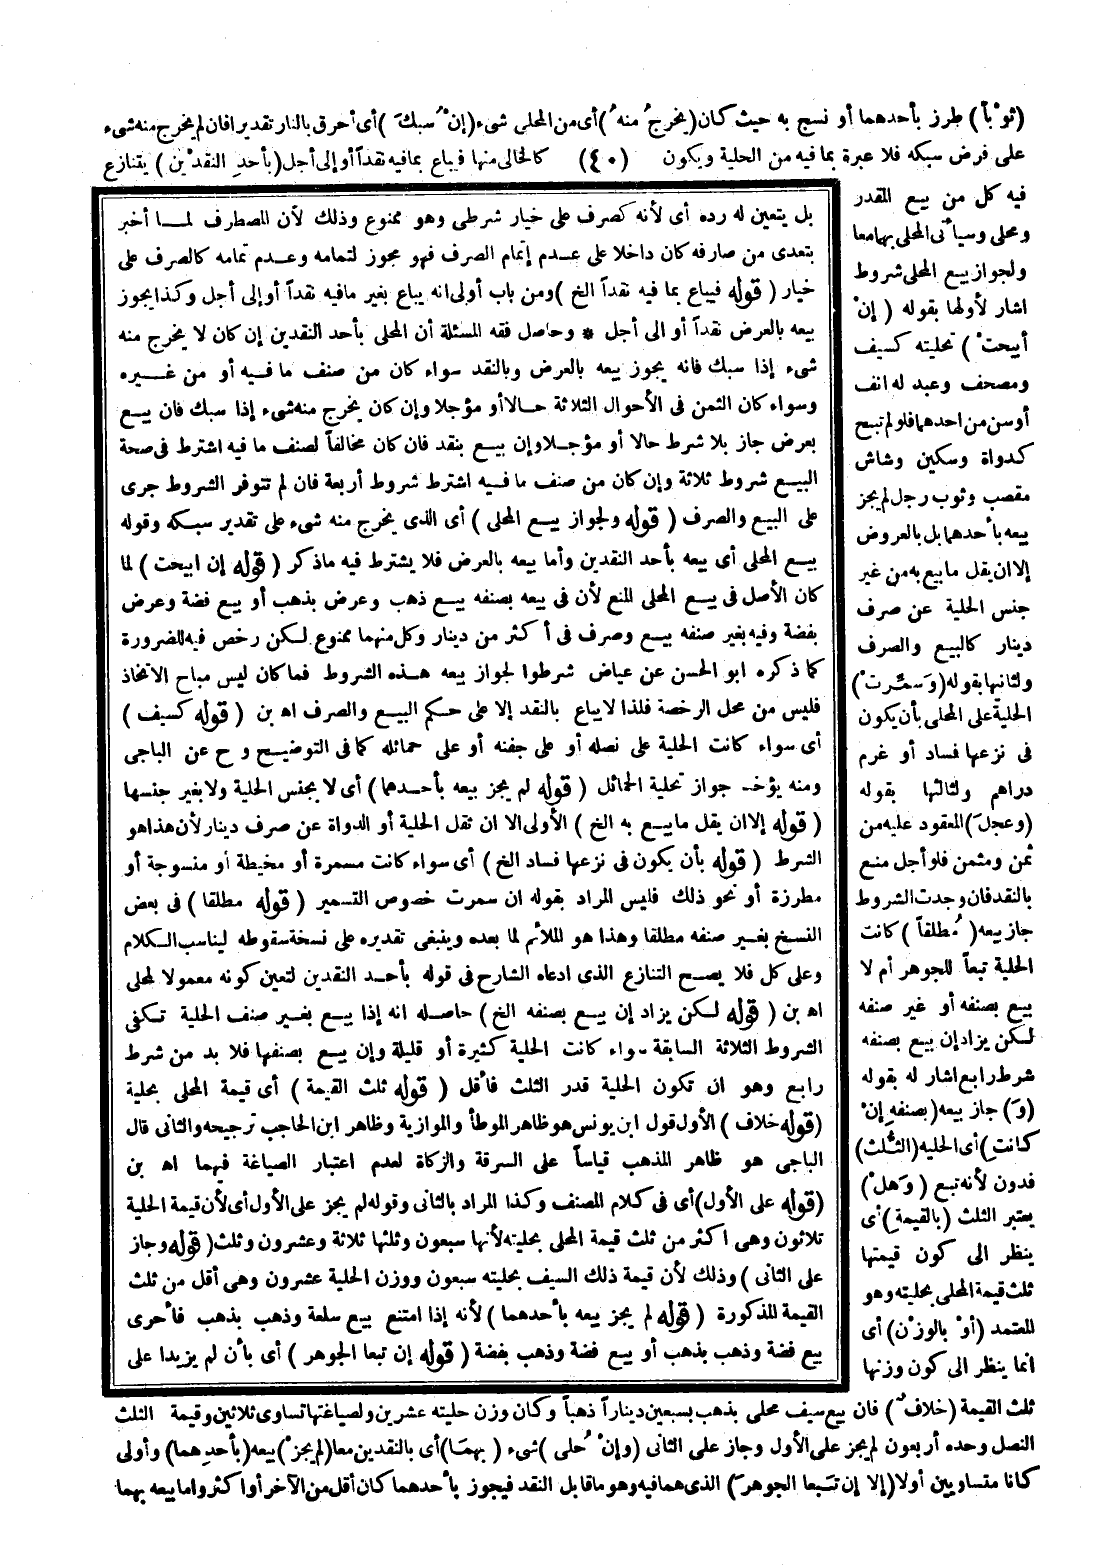 (ثوْباً) طرز بأحدهما أو نسج به حيث كان (يخرجُ منهُ) أى من المحلى شىء (إنْ سُبكَ) أى أحرق بالنار تقديرا فان لم يخرج منه شىء
على فرض سبكه فلا عبرة بما فيه من الحلية ويكون (٤٠) كالخالى منها فيباع بمافيه نقداً أو إلى أجل (بأحدِ النقدَيْن) يتنازع
فيه كل من بيع المقدر
ومحلى وسيأتى المحلى بهما معا
ولجواز بيع المحلى شروط
اشار لأولها بقوله (إنْ
أبيحتْ) تحليته كسيف
ومصحف وعبد له انف
أو سن من احدهما فلو لم تبح
كدواة وسكين وشاش
مقصب وثوب رجل لم يجز
بيعه بأحدهما بل بالعروض
إلا ان يقل ما بيع به من غير
جنس الحلية عن صرف
دينار كالبيع والصرف
ولثانيها بقوله (وَسمِّرتْ)
الحلية على المحلى بأن يكون
فى نزعها فساد أو غرم
دراهم ولثالثها بقوله
(وعجلَ) المعقود عليه من
ثمن ومثمن فلو أجل منع
بالنقد فان وجدت الشروط
جاز بيعه (مُطلقاً) كانت
الحلية تبعاً للجوهر أم لا
بيع بصنفه أو غير صنفه
لكن يزاد إن بيع بصنفه
شرط رابع اشار له بقوله
(وَ) جاز بيعه (بصنفهِ إنْ
كانت) أى الحليه (الثُّلث)
فدون لأنه تبع (وَهلْ)
يعتبر الثلث (بالقيمة) أى
ينظر الى كون قيمتها
ثلث قيمة المحلى بحليته وهو
المعتمد (أوْ بالوزْن) أى
انما ينظر الى كون وزنها
بل يتعين له رده أى لأنه كصرف على خيار شرطى وهو ممنوع وذلك لأن المصطرف لما أخبر
بتعدى من صارفه كان داخلا على عدم إتمام الصرف فهو مجوز لتمامه وعدم تمامه كالصرف على
خيار (قوله فيباع بما فيه نقداً الخ) ومن باب أولى انه يباع بغير مافيه نقداً أو إلى أجل وكذا يجوز
بيعه بالعرض نقداً أو الى أجل * وحاصل فقه المسئلة أن المحلى بأحد النقدين إن كان لا يخرج منه
شىء إذا سبك فانه يجوز بيعه بالعرض وبالنقد سواء كان من صنف ما فيه أو من غيره
وسواء كان الثمن فى الأحوال الثلاثة حالا أو مؤجلا وإن كان يخرج منه شىء إذا سبك فان بيع
بعرض جاز بلا شرط حالا أو مؤجلا وإن بيع بنقد فان كان مخالفاً لصنف ما فيه اشترط فى صحة
البيع شروط ثلاثة وإن كان من صنف ما فيه اشترط شروط أربعة فان لم تتوفر الشروط جرى
على البيع والصرف (قوله ولجواز بيع المحلى) أى الذى يخرج منه شىء على تقدير سبكه وقوله
بيع المحلى أى بيعه بأحد النقدين وأما بيعه بالعرض فلا يشترط فيه ماذكر (قوله إن ابيحت) لما
كان الأصل فى بيع المحلى المنع لأن فى بيعه بصنفه بيع ذهب وعرض بذهب أو بيع فضة وعرض
بفضة وفيه بغير صنفه بيع وصرف فى أكثر من دينار وكل منهما ممنوع لكن رخص فيه للضرورة
كما ذكره ابو الحسن عن عياض شرطوا لجواز بيعه هذه الشروط فما كان ليس مباح الاتخاذ
فليس من محل الرخصة فلذا لا يباع بالنقد إلا على حكم البيع والصرف اه بن (قوله كسيف)
أى سواء كانت الحلية على نصله أو على جفنه أو على حمائله كما فى التوضيح و ح عن الباجى
ومنه يؤخذ جواز تحلية الحمائل (قوله لم يجز بيعه بأحدهما) أى لا بجنس الحلية ولا بغير جنسها
(قوله إلا ان يقل ما بيع به الخ) الأولى الا ان تقل الحلية أو الدواة عن صرف دينار لأن هذا هو
الشرط (قوله بأن يكون فى نزعها فساد الخ) أى سواء كانت مسمرة أو مخيطة أو منسوجة أو
مطرزة أو نحو ذلك فليس المراد بقوله ان سمرت خصوص التسمير (قوله مطلقا) فى بعض
النسخ بغير صنفه مطلقا وهذا هو الملائم لما بعده وينبغى تقديره على نسخة سقوطه ليناسب الكلام
وعلى كل فلا يصح التنازع الذى ادعاه الشارح فى قوله بأحد النقدين لتعين كونه معمولا لمحلى
اه بن (قوله لكن يزاد إن بيع بصنفه الخ) حاصله انه إذا بيع بغير صنف الحلية تكفى
الشروط الثلاثة السابقة سواء كانت الحلية كثيرة أو قليلة وإن بيع بصنفها فلا بد من شرط
رابع وهو ان تكون الحلية قدر الثلث فأقل (قوله ثلث القيمة) أى قيمة المحلى بحلية
(قوله خلاف) الأول قول ابن يونس هو ظاهر الموطأ والموازية وظاهر ابن الحاجب ترجيحه والثانى قال
الباجى هو ظاهر المذهب قياساً على السرقة والزكاة لعدم اعتبار الصياغة فيهما اه بن
(قوله على الأول) أى فى كلام المصنف وكذا المراد بالثانى وقوله لم يجز على الأول أى لأن قيمة الحلية
ثلاثون وهى اكثر من ثلث قيمة المحلى بحليته لأنها سبعون وثلثها ثلاثة وعشرون وثلث (قوله وجاز
على الثانى) وذلك لأن قيمة ذلك السيف بحليته سبعون ووزن الحلية عشرون وهى أقل من ثلث
القيمة المذكورة (قوله لم يجز بيعه بأحدهما) لأنه إذا امتنع بيع سلعة وذهب بذهب فأحرى
بيع فضة وذهب بذهب أو بيع فضة وذهب بفضة (قوله إن تبعا الجوهر) أى بأن لم يزيدا على
ثلث القيمة (خلافٌ) فان بيع سيف محلى بذهب بسبعين ديناراً ذهباً وكان وزن حليته عشرين ولصياغتها تساوى ثلاثين وقيمة الثلث
النصل وحده أربعون لم يجز على الأول وجاز على الثانى (وإنْ حُلى) شىء (بهمَا) أى بالنقدين معا (لم يجزْ) بيعه (بأحدِهما) وأولى
كانا متساويين أولا (إلا إن تَبعا الجوهرَ) الذى هما فيه وهو ماقابل النقد فيجوز بأحدهما كان أقل من الآخر أوا كثر واما بيعه بهما